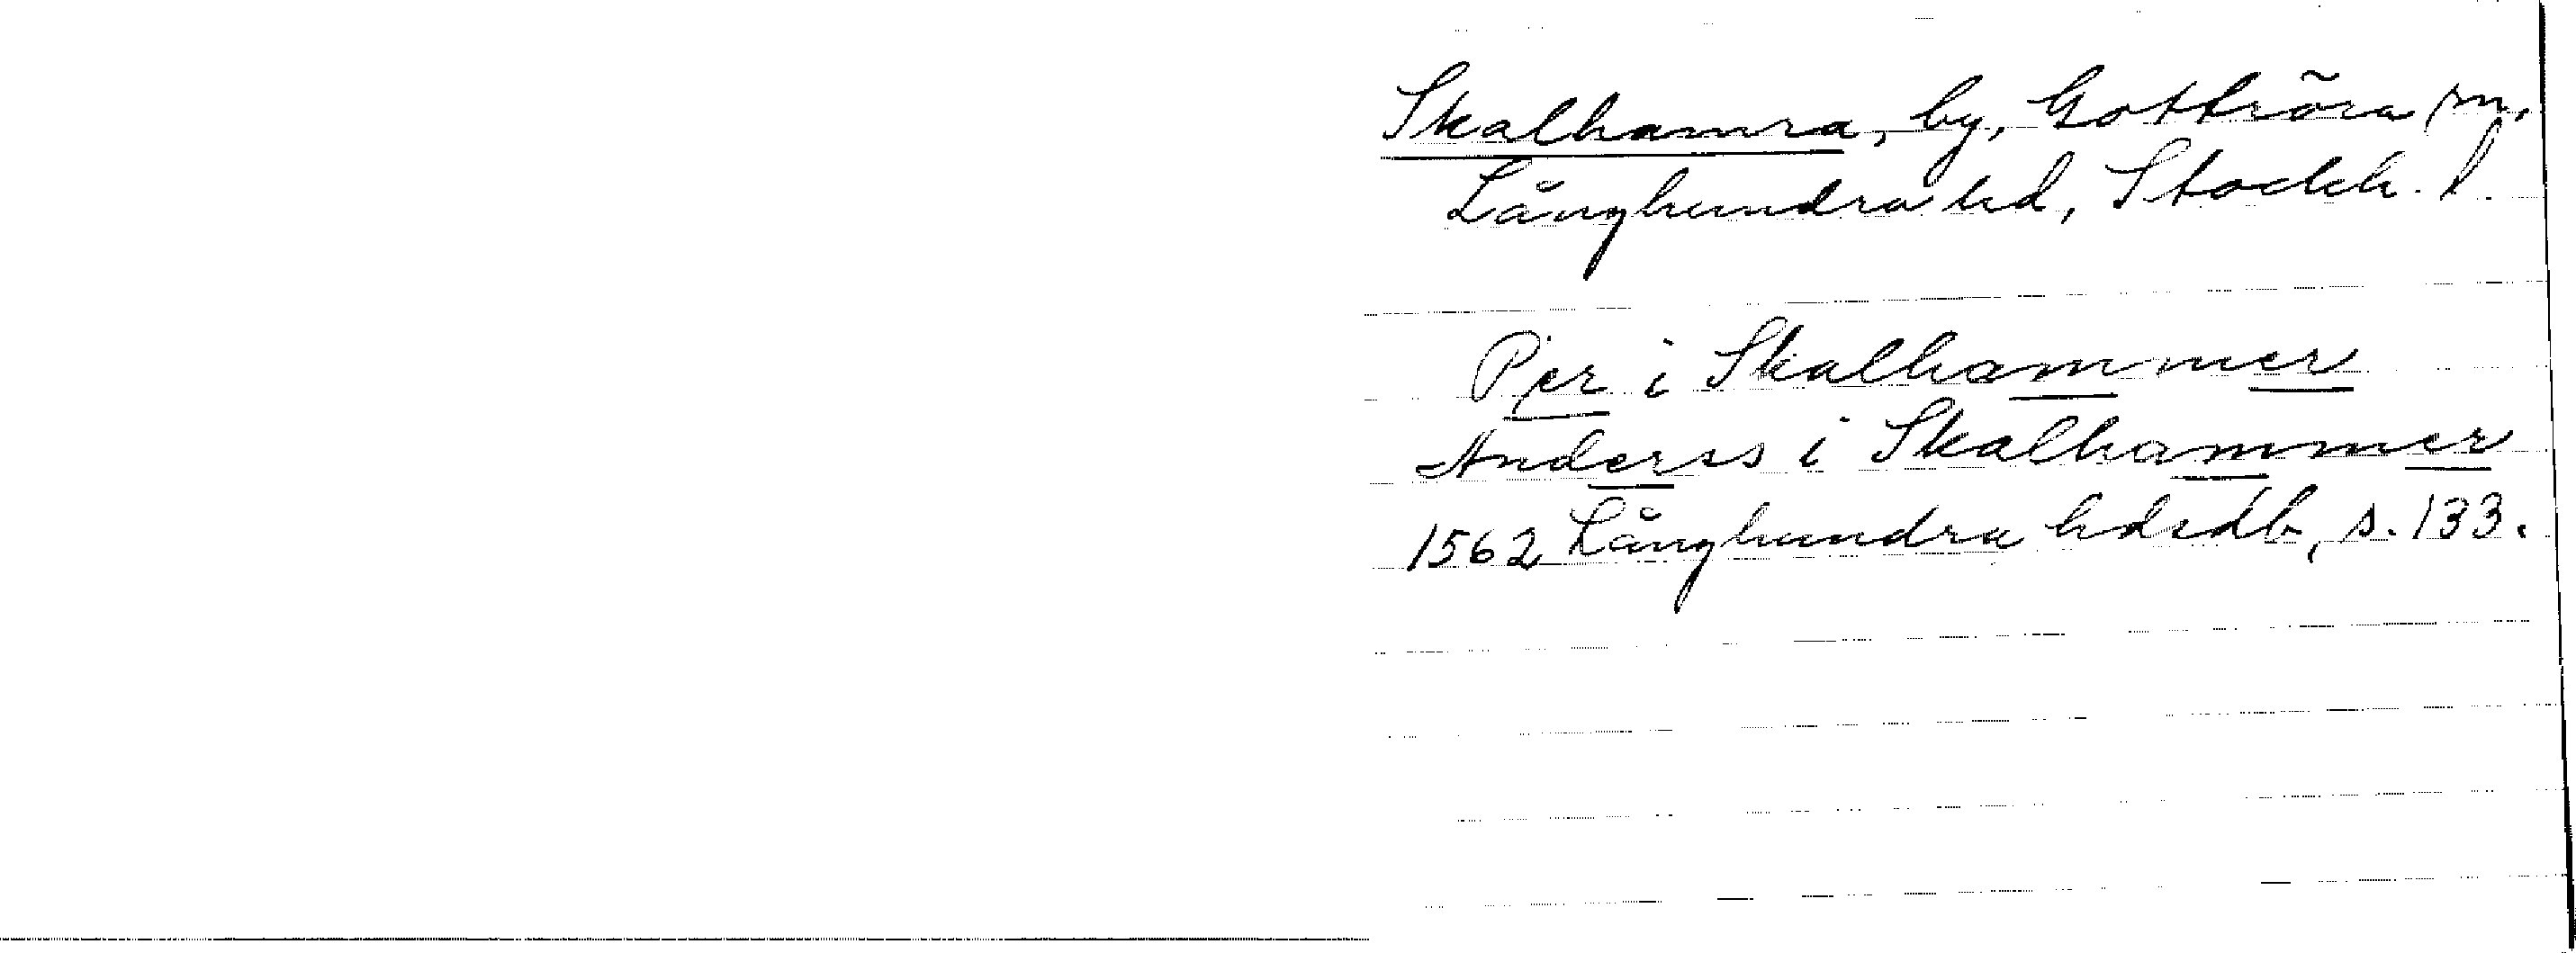 Skalhamra, by, Gottröra sn,
Långhundra hd, Stockh. l
Per i Skalhammer
Anderss i Skalhammer
1562 Långhundra hdsdb, s. 133.